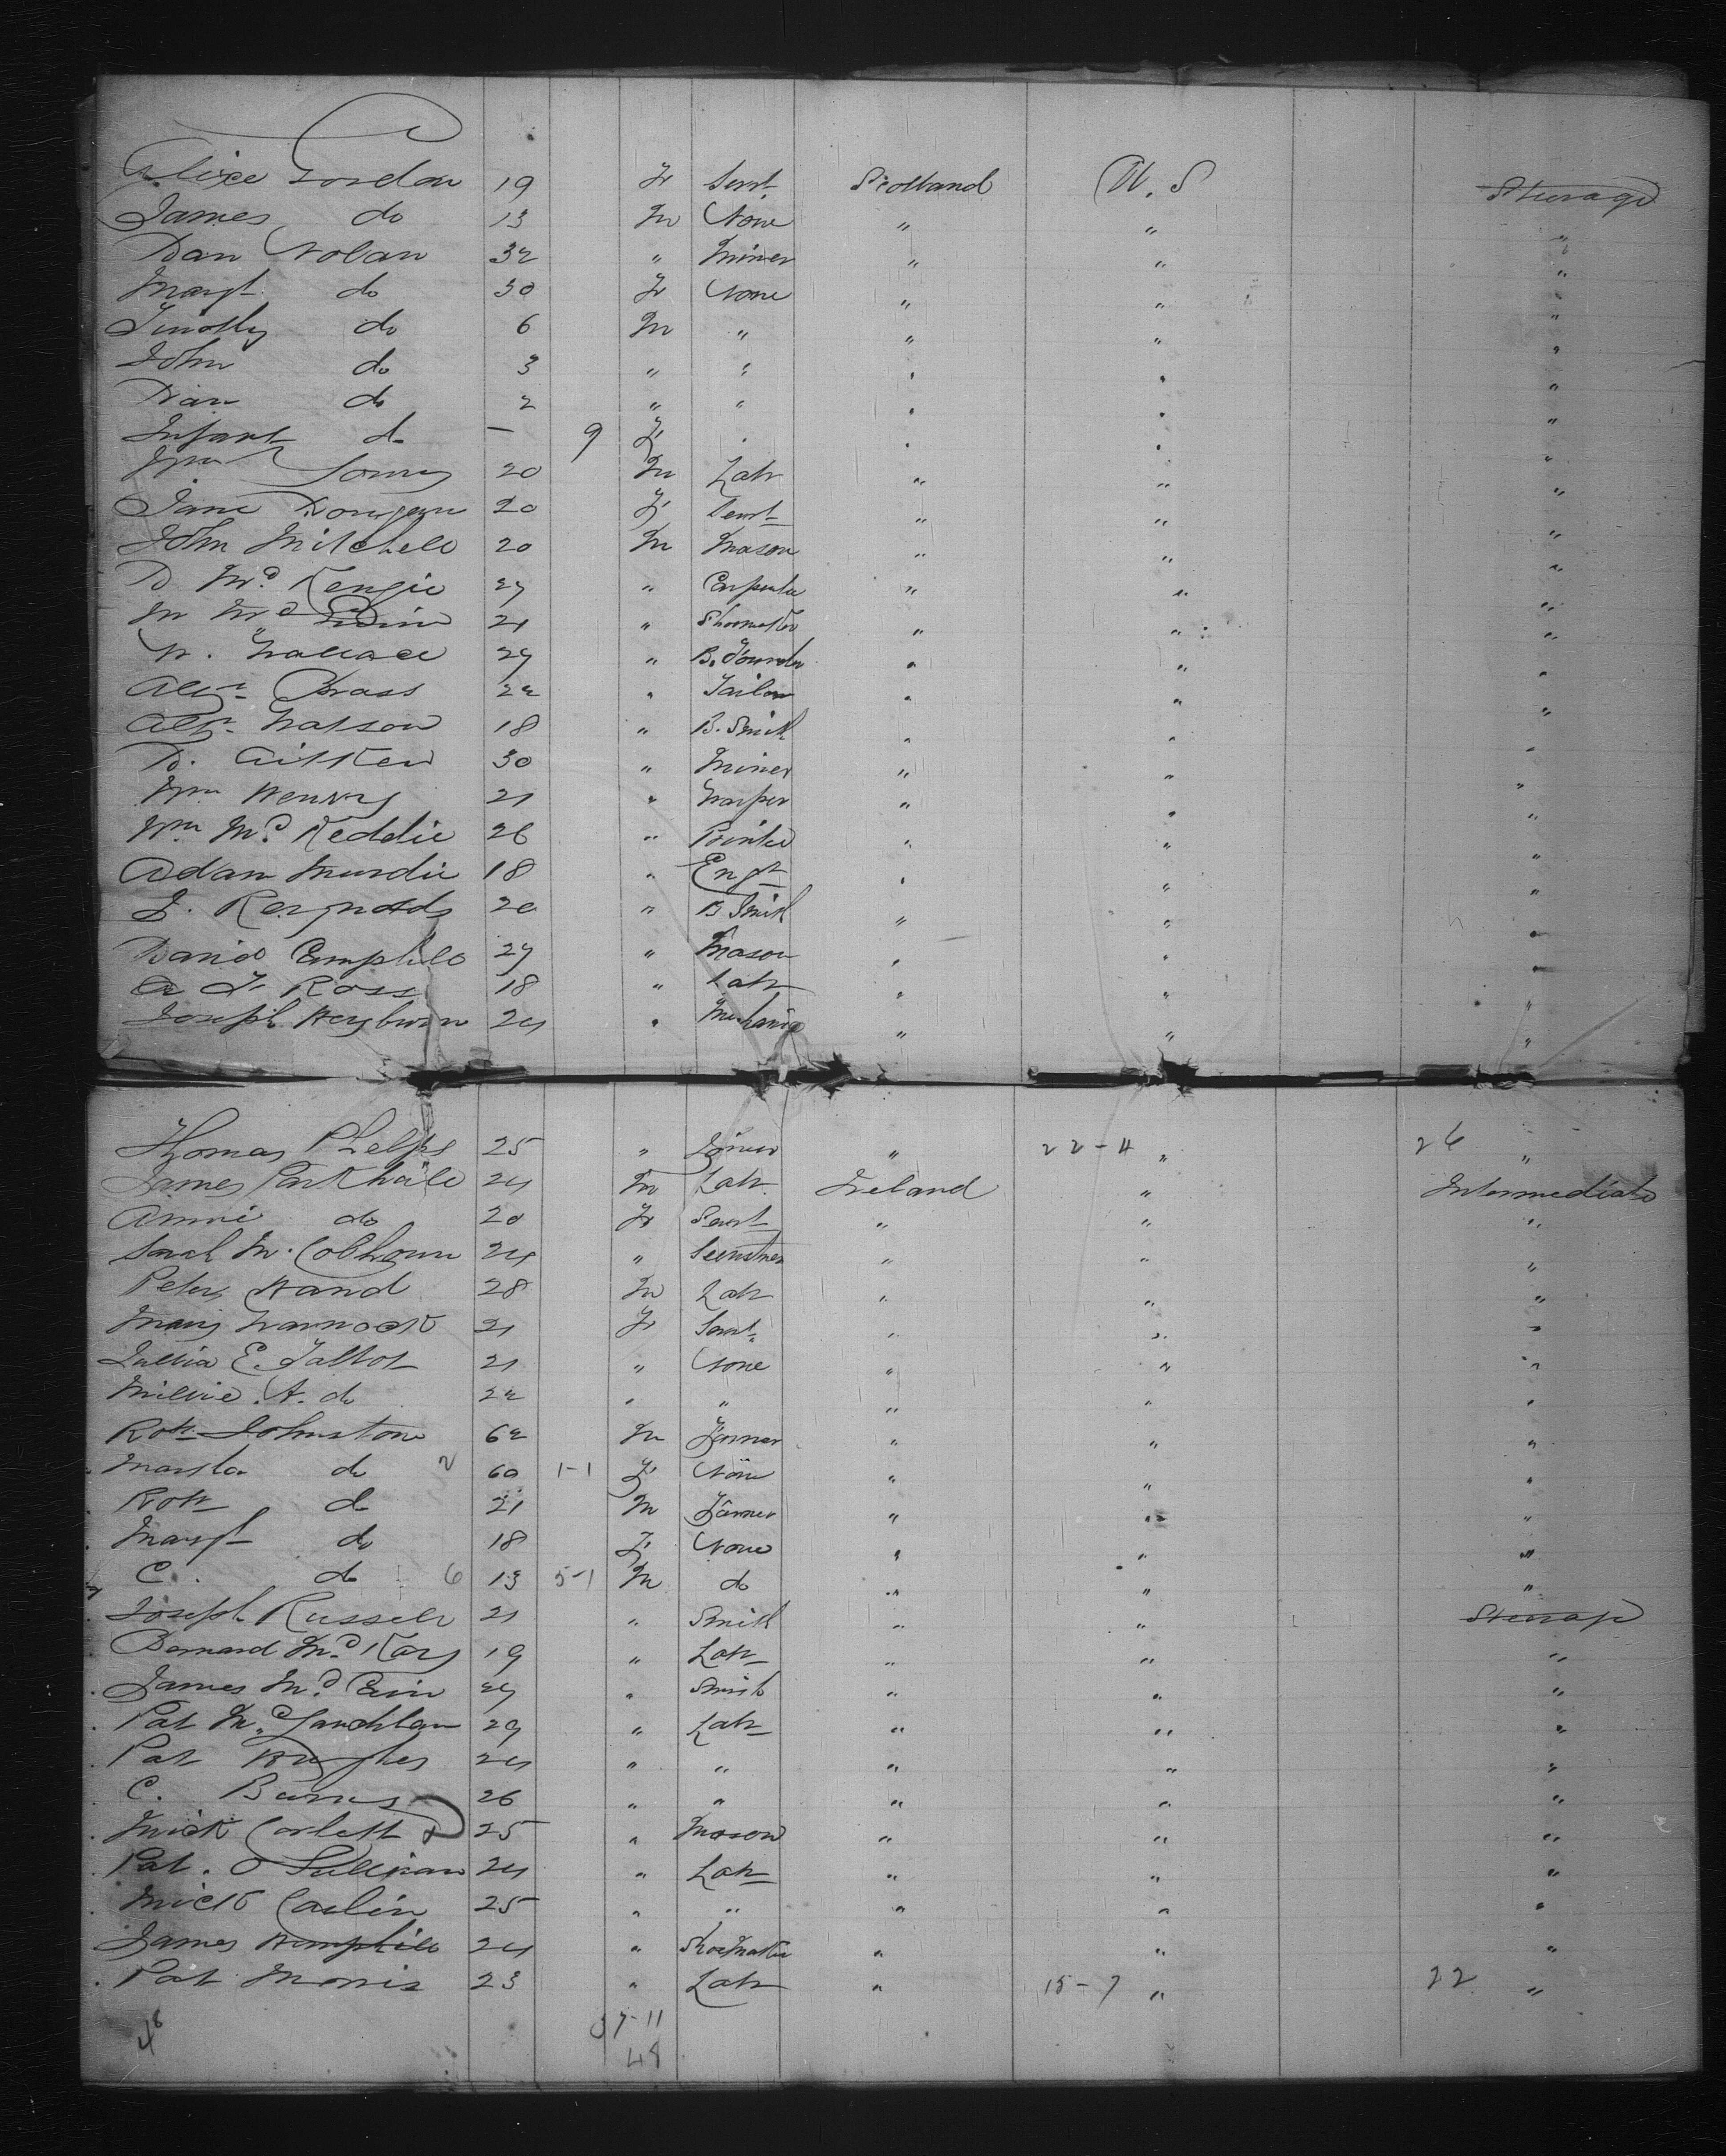 Alixe Gordon 19 F Servt Scotland U.S Steerage
James do 13 M None " " "
Dan Nolan 32 " Miner " " "
Margt do 30 F None " " "
Timothy do 6 M " " " "
John do 3 " " " " "
Dan do 2 " " " " "
Infant do — 9 F " " " "
Wm 20 M Labr " " "
Jane 20 F Servt " " "
John Mitchell 20 M Mason " " "
D. Mc Kenzie 27 " Carpenter " " "
M Mc 21 " Shoemaker " " "
W. Wallace 27 " B. Founder " " "
Alexr Brass 22 " Tailor " " "
Alexr Watson 18 " B. Smith " " "
D. Aitken 30 " Miner " " "
Wm Henry 21 " " " "
Wm Mc Keddie 26 " Printer " " "
Adam Murdie 18 " Engr " " "
J. Reynolds 20 " B Smith " " "
David Campbell 27 " Mason " " "
A F Ross 18 " Labr " " "
Joseph Heyburn 24 " Mechanic " " "
Thomas Phelps 25 " Joiner " 22-4 " 26 "
James Parkhill 24 M Labr Ireland " Intermediate
Annie do 20 F Servt " " "
Sarah M. Colhoun 24 " " " "
Peter Hand 28 M Labr " " "
Mary Warnock 21 F Servt " " "
Julia E. Talbot 21 " None " " "
Millie A. do 22 " " " " "
Robt Johnstone 62 M Farmer " " "
Martha do 2 60 1-1 F None " " "
Robt do 21 M Farmer " " "
Margt do 18 F None " " "
C. do 6 13 5-1 M do " " "
Joseph Russell 21 " Smith " " Steerage
Bernard Mc Kay 19 " Labr " " "
James Mc Cain 27 " Smith " " "
Pat Mc Lauchlan 29 " Labr " " "
Pat Hughes 24 " " " " "
C. Burns 26 " " " " "
Mick Corlett 25 " Mason " " "
Pat. O Sullivan 24 " Labr " " "
Mick Carlin 25 " " " " "
James Hemphill 24 " Shoemaker " " "
Pat Morris 23 " Labr " 15-7 " 22 "
48 37-11
48